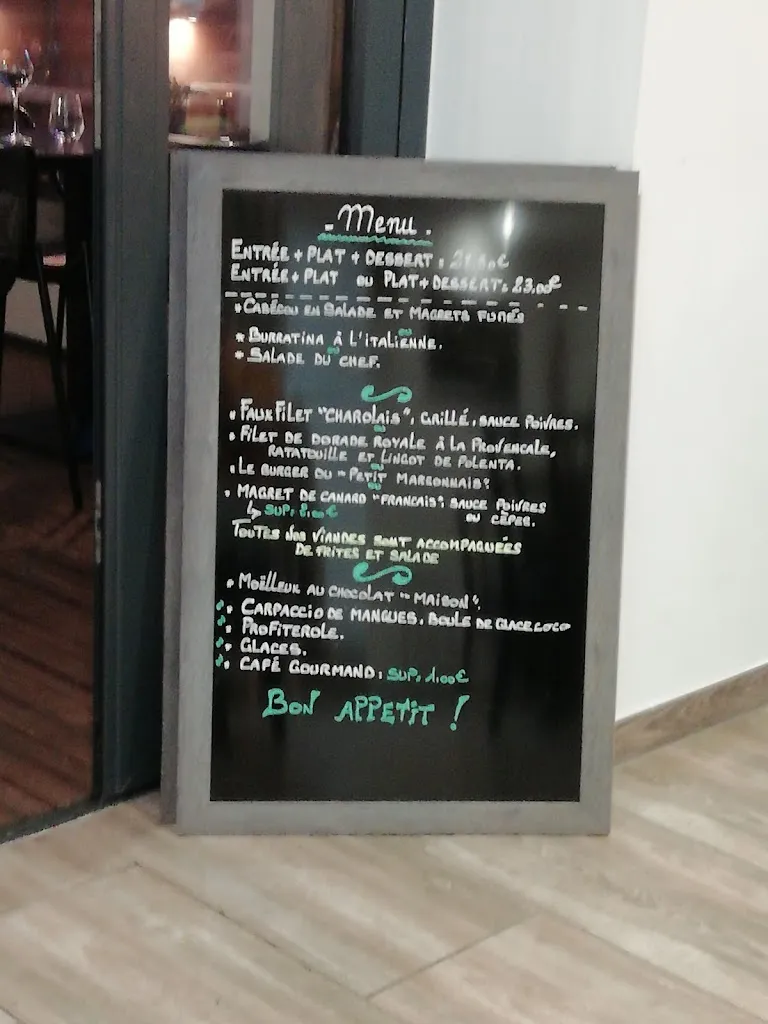 - Menu -
ENTRÉE + PLAT + DESSERT :
ENTRÉE + PLAT OU PLAT + DESSERT : 23.00€
* CABÉCOU EN SALADE ET MAGRETS FUMÉS
ou
* BURRATINA À L'ITALIENNE.
ou
* SALADE DU CHEF.
* FAUX FILET "CHAROLAIS", GRILLÉ, SAUCE POIVRES.
ou
* FILET DE DORADE ROYALE À LA PROVENCALE,
RATATOUILLE ET LINGOT DE POLENTA.
ou
* LE BURGER DU "PETIT MARGONNAIS".
ou
* MAGRET DE CANARD "FRANCAIS", SAUCE POIVRES
OU CÈPES.
↳ SUP: 2.00€
TOUTES NOS VIANDES SONT ACCOMPAGNÉES
DE FRITES ET SALADE
* MOËLLEUX AU CHOCOLAT "MAISON".
* CARPACCIO DE MANGUES, BOULE DE GLACE COCO
* PROFITEROLE.
* GLACES.
* CAFÉ GOURMAND : SUP: 1.00€
BON APPETIT !